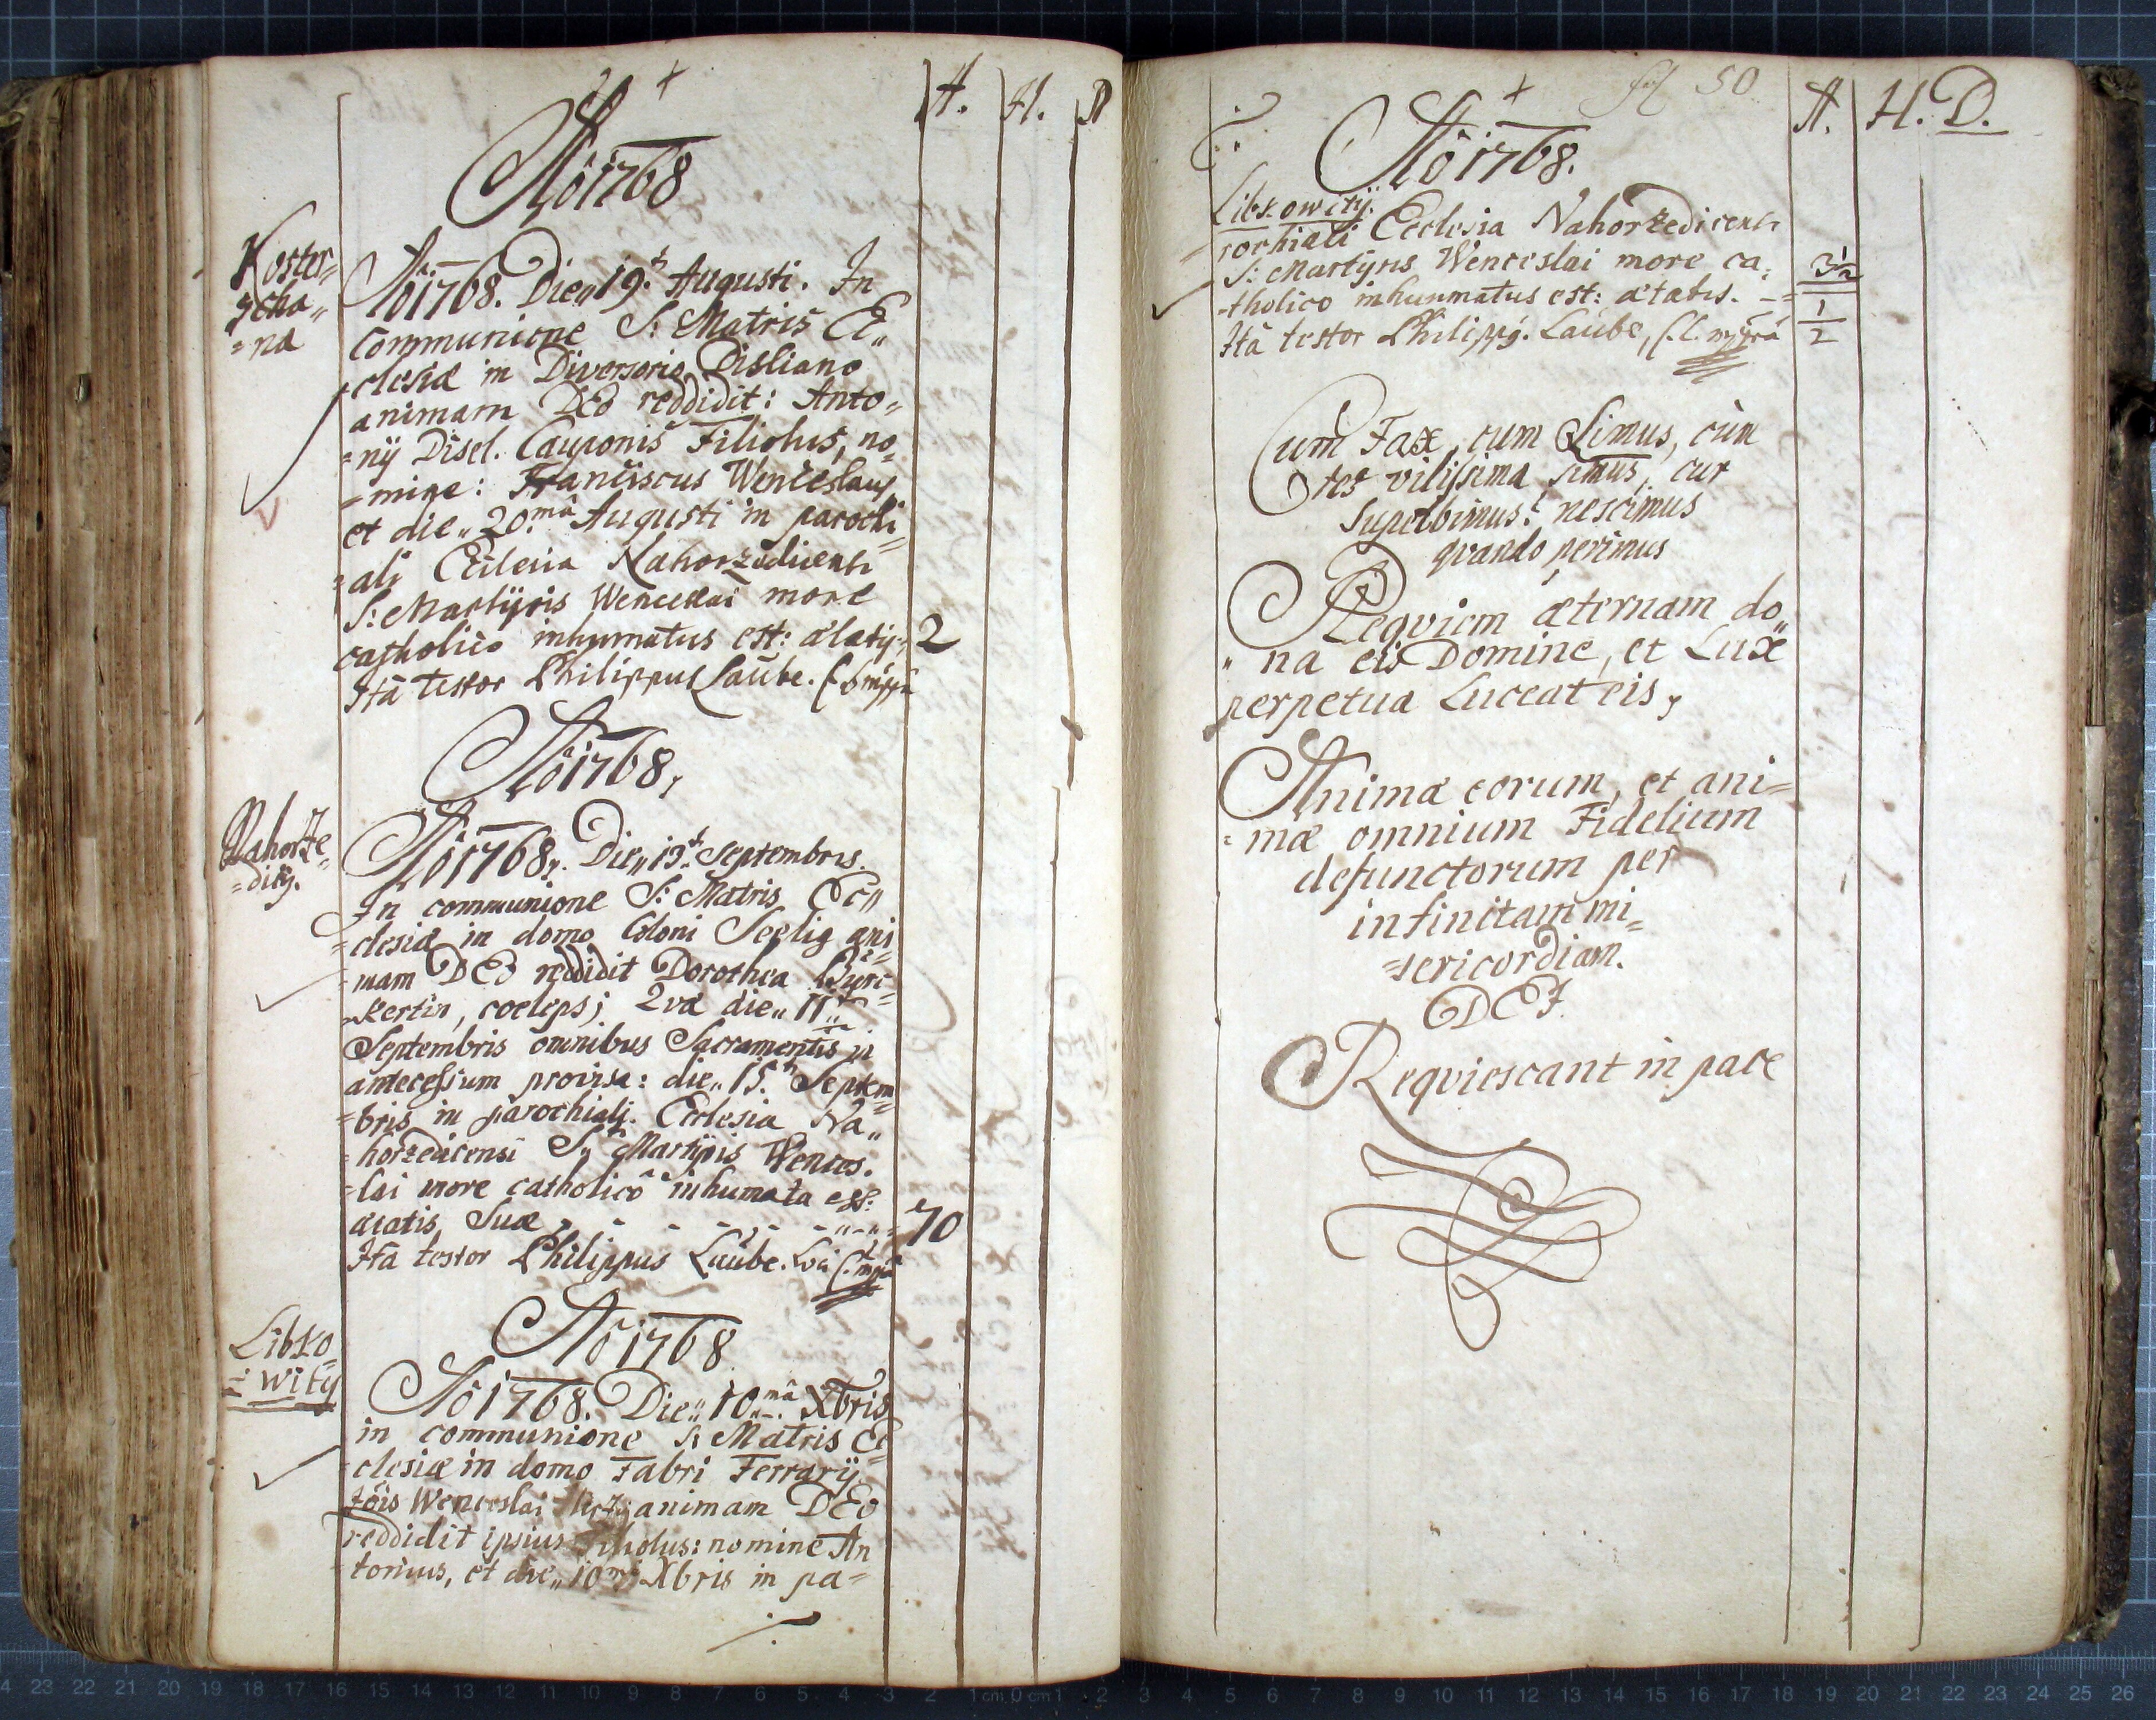 A. H. D
Aõ 1768
Koster=
zcha„
=na
Aõ 1768. Die„ 19.ᵗ Augusti. In
Communione S: Matris Ec„
clesiæ in Diversorio Disliano
animam DEO reddidit: Anto=
=nÿ Disel. Cauponis Filiolus, no=
=mine: Franciscus Wenceslaus
et die„ 20.mâ Augusti in parochi=
=ali Ecclesia Nahorzedicensi
S: Martÿris Wenceslai more
catholico inhumatus est: ætatis 2
Ità testor Philippus Laube.
Aõ 1768,
Nahorze=
=ditÿ.
Aõ 1768. Die„ 13.ᵗ Septembris
In communione S: Matris Ec„
=clesiæ in domo Coloni Seelig ani=
mam DEO reddidit Dorothea
coeleps; 2væ die„ 11.
Septembris omnibus Sacramentis in
antecessum provisa: die„ 15.ᵗ Septem=
=bris in parochiali Ecclesia Na„
=horzedicensi S. Martÿris Wences.
=lai more catholicô inhumata est:
ætatis suæ 70
Ità testor Philippus Laube.
Aõ 1768
Libko=
=witÿ
Aõ 1768. Die„ 10.mâ Xbris
in communione S: Matris Ec=
clesiæ in domo Fabri Ferrarÿ
Jois Wenceslai animam DEO
reddidit ipsius Filiolus: nomine An
tonius, et die„ 10 Xbris in pa=
fol 50
A. H. D.
Aõ 1768.
Libkowitÿ.
rochiali Ecclesia Nahorzedicensi
S: Martÿris Wenceslai more ca=
tholico inhummatus est: ætatis. 3½
Ità testor Philippÿ. Laube, 1/2
Cum Fæx, cum Limus, cùm
res vilissima simus, cur
superbimus? nescimus
quando perimus
Reqviem æternam do„
„na eis Domine, et Lux
perpetua Luceat eis,
Animæ eorum, et ani=
=mæ omnium Fidelium
defunctorum per
infinitam mi=
=sericordiam.
DEI
Reqviescant in pace